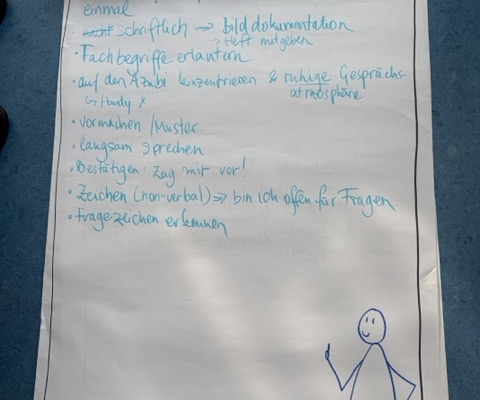 einmal
schriftlich → bilddokumentation
→ Heft mitgeben
• Fachbegriffe erläutern
• auf den Azubi konzentrieren & ruhige Gesprächs-
atmosphäre
↳ Handy x
• vormachen / Muster
• langsam sprechen
• Bestätigen: Zag mit vor!
• Zeichen (non-verbal) → bin ich offen für Fragen
• Fragezeichen erkennen